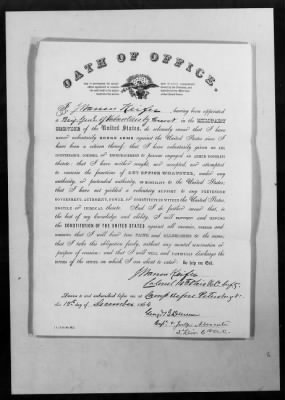 OATH OF OFFICE.
I, J Warren Keifer, having been appointed
a Brig. Genl. of Volunteers by brevet in the MILITARY
SERVICE of the United States, do solemnly swear that I have
never voluntarily BORNE ARMS against the United States since I
have been a citizen thereof; that I have voluntarily given no AID,
COUNTENANCE, COUNSEL, or ENCOURAGEMENT to persons engaged in ARMED HOSTILITY
thereto; that I have neither sought nor accepted, nor attempted to
exercise the functions of ANY OFFICE WHATEVER, under any
authority, or pretended authority, IN HOSTILITY to the United States;
that I have not yielded a voluntary support to any PRETENDED
GOVERNMENT, AUTHORITY, POWER, or CONSTITUTION within the United States,
HOSTILE or INIMICAL thereto. And I do further swear that, to
the best of my knowledge and ability, I will SUPPORT and DEFEND
the CONSTITUTION OF THE UNITED STATES against all enemies, FOREIGN and
DOMESTIC; that I will bear TRUE FAITH and ALLEGIANCE to the same;
that I take this obligation freely, without any mental reservation or
purpose of evasion; and that I will WELL and FAITHFULLY DISCHARGE the
DUTIES of the OFFICE on which I am about to enter: So help me God.
J Warren Keifer
Colonel
Sworn to and subscribed before me, at Camp before Petersburg Va.
this day of December 1864